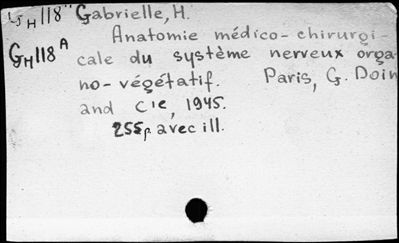 GH118 Gabrielle, H.
GH118A Anatomie médico-chirurgi-
cale du système nerveux orga-
no-végétatif. Paris, G. Doin
and Cie, 1945.
255p. avec ill.